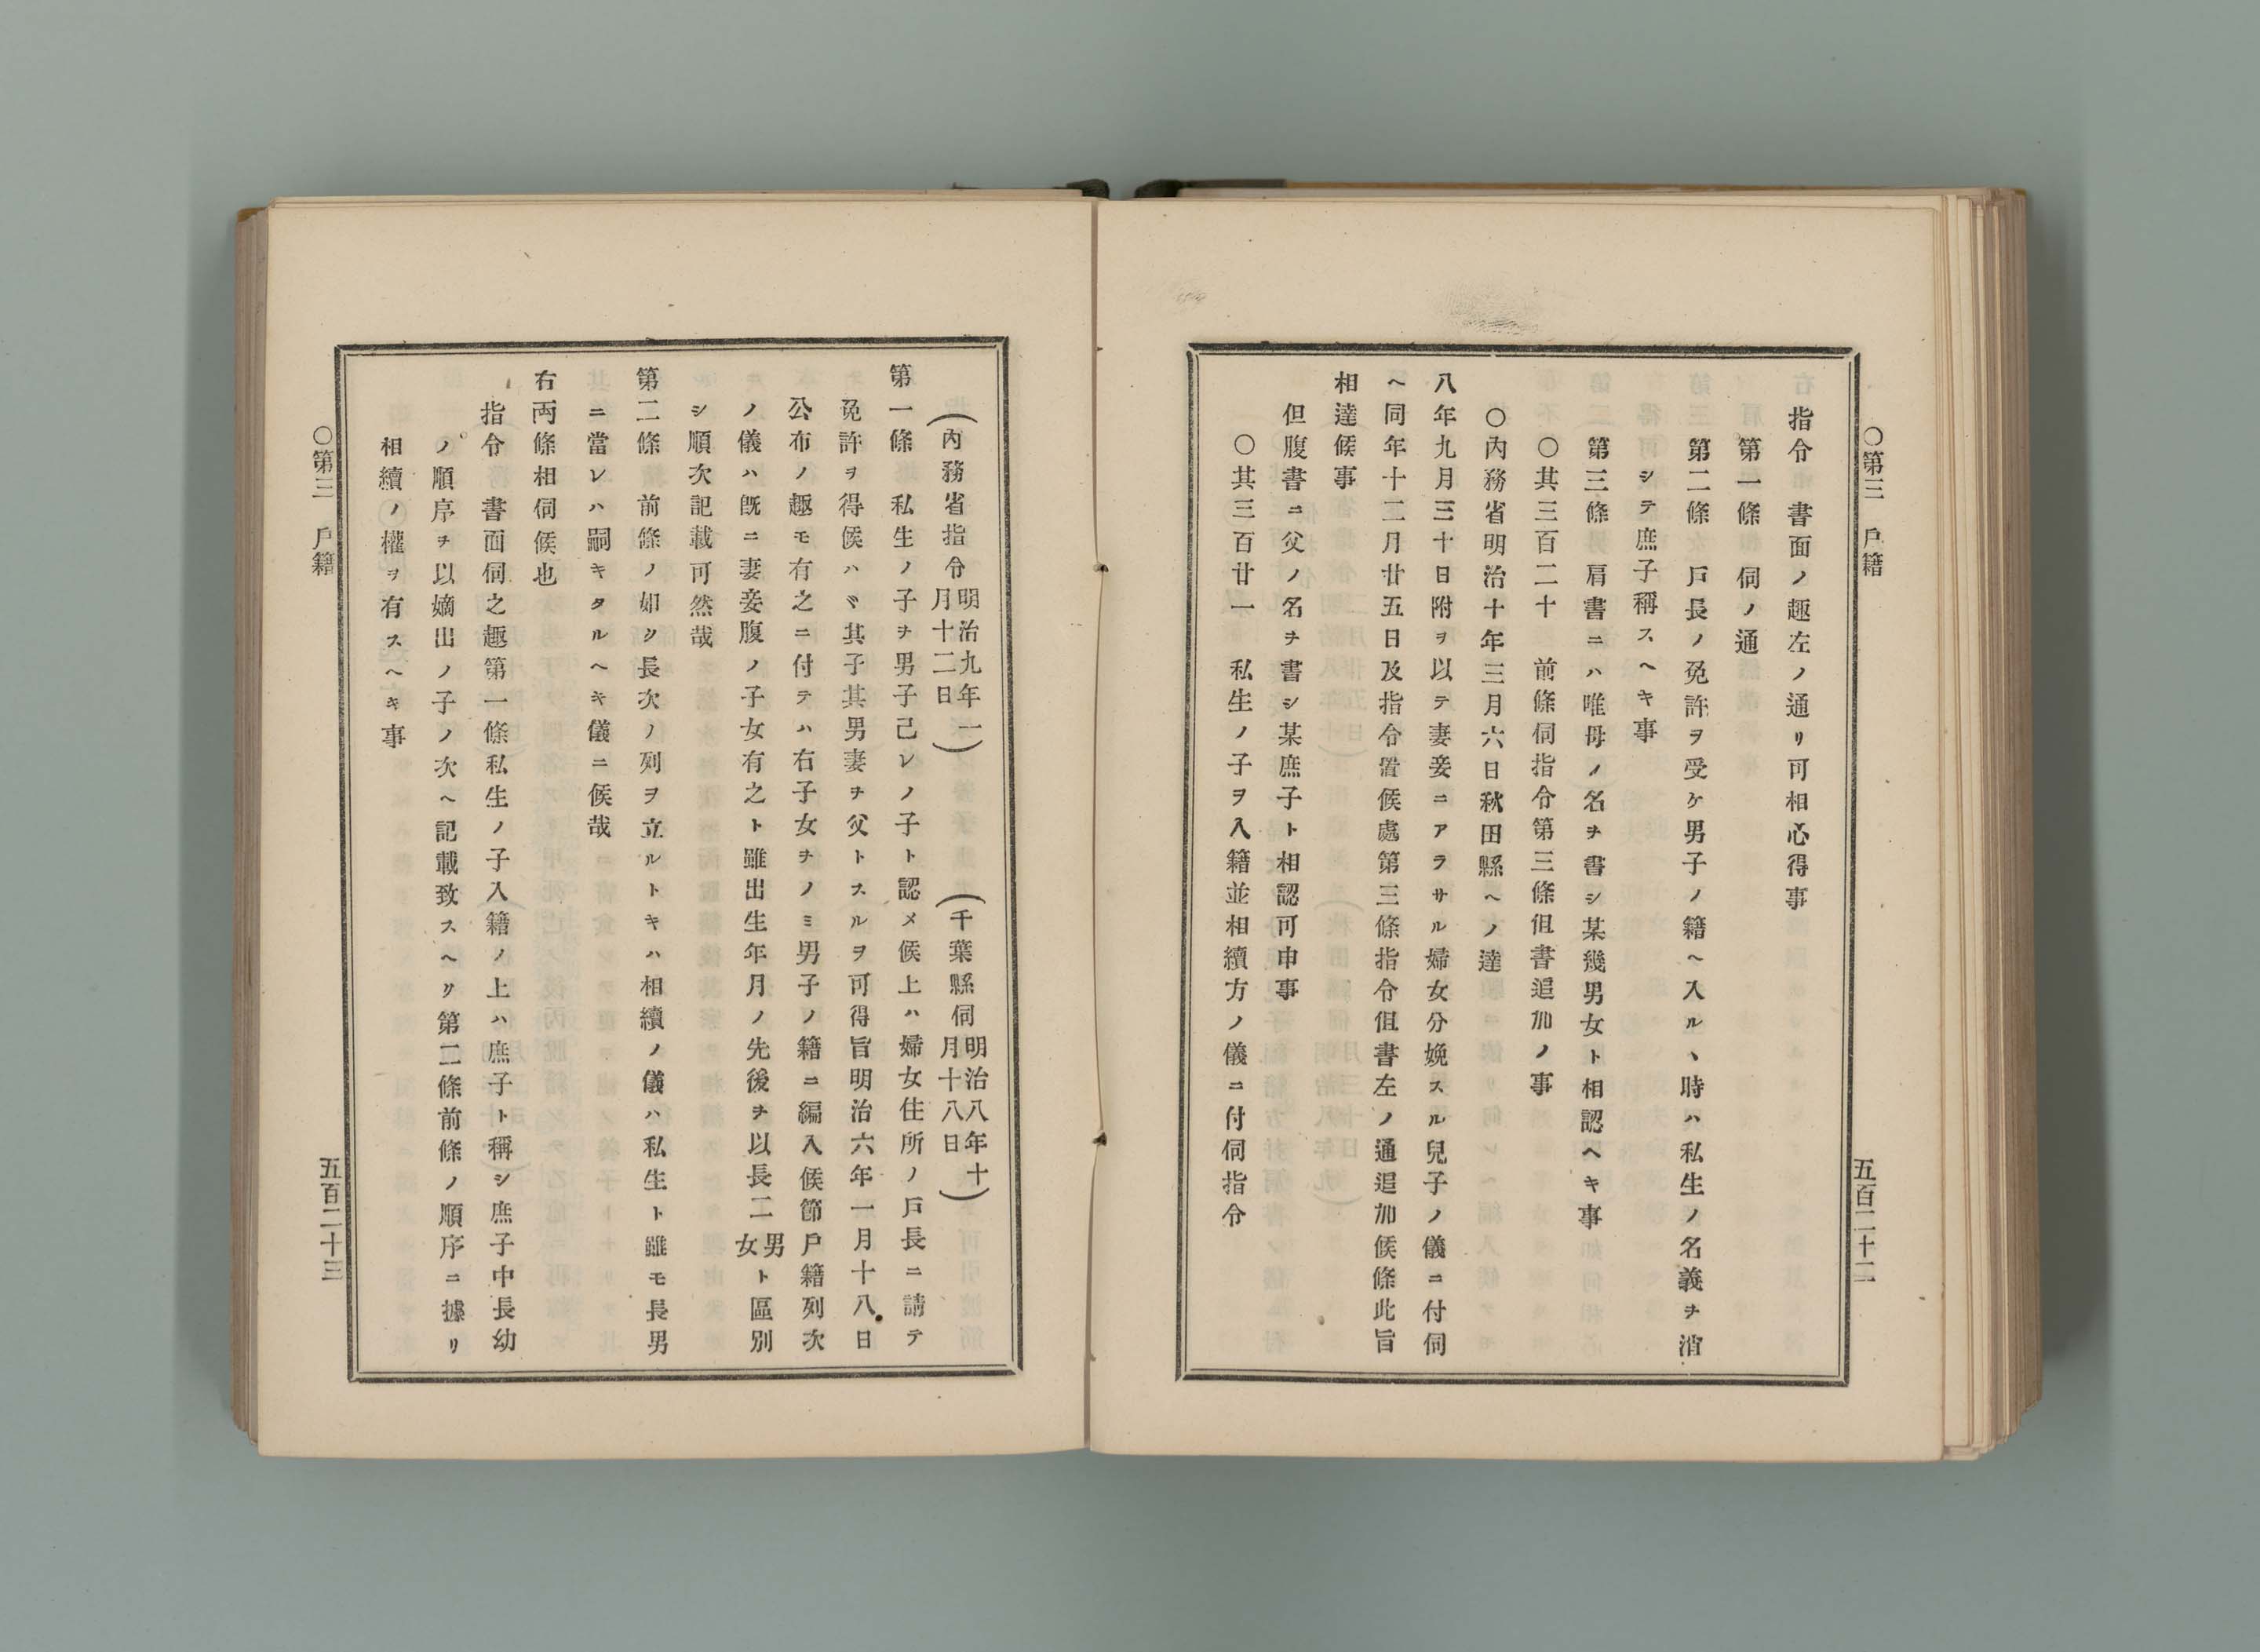 〇第三　戸籍
五百二十二
指令　書面ノ趣左ノ通リ可相心得事
第一條　伺ノ通
第二條　戸長ノ免許ヲ受ケ男子ノ籍ヘ入ル丶時ハ私生ノ名義ヲ消
シテ庶子稱スヘキ事
第三條　肩書ニハ唯母ノ名ヲ書シ某幾男女ト相認ヘキ事
〇其三百二十　前條伺指令第三條但書追加ノ事
〇內務省明治十年三月六日秋田縣ヘノ達
八年九月三十日附ヲ以テ妻妾ニアラサル婦女分娩スル兒子ノ儀ニ付伺
ヘ同年十二月廿五日及指令置候處第三條指令但書左ノ通追加候條此旨
相達候事
但腹書ニ父ノ名ヲ書シ某庶子ト相認可申事
〇其三百廿一　私生ノ子ヲ入籍並相續方ノ儀ニ付伺指令
（內務省指令明治九年一月十二日）　（千葉縣伺明治八年十月十八日）
第一條　私生ノ子ヲ男子己レノ子ト認メ候上ハ婦女住所ノ戸長ニ請テ
免許ヲ得候ハヾ其子其男妻ヲ父トスルヲ可得旨明治六年一月十八日
公布ノ趣モ有之ニ付テハ右子女ヲノミ男子ノ籍ニ編入候節戸籍列次
ノ儀ハ既ニ妻妾腹ノ子女有之ト雖出生年月ノ先後ヲ以長二男女ト區別
シ順次記載可然哉
第二條　前條ノ如ク長次ノ列ヲ立ルトキハ相續ノ儀ハ私生ト雖モ長男
ニ當レハ嗣キタルヘキ儀ニ候哉
右両條相伺候也
指令　書面伺之趣第一條私生ノ子入籍ノ上ハ庶子ト稱シ庶子中長幼
ノ順序ヲ以嫡出ノ子ノ次ヘ記載致スヘク第二條前條ノ順序ニ據リ
相續ノ權ヲ有スヘキ事
〇第三　戸籍
五百二十三